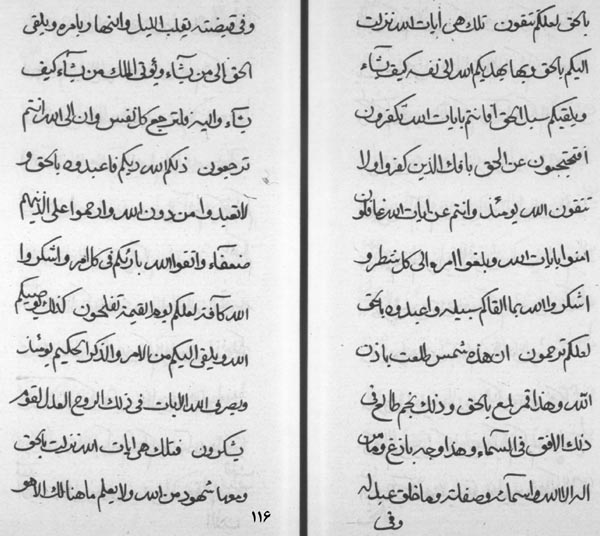 بالحق لعلكم تتقون تلك هي آيات الله نزلت
اليكم بالحق وبها يهديكم الله الى نفسه كيف يشاء
ويلقيكم سبل الحق أفانتم بايات الله تكفرون
أفتحتجبون عن الحق بافك الذين كفروا ولا
تتقون الله يومئذ وانتم عن ايات الله غافلون
امنوا بايات الله وبلغوا امره الى كل شطر و
اشكروا الله بما القاكم سبيله واعبدوه بالحق
لعلكم ترحمون ان هذه شمس طلعت باذن
الله وهذا قمر يلمع بالحق وذلك نجم طالع في
ذلك الافق في السماء وهذا وجه بازغ وما من
اله الا الله واسمائه وصفاته وما خلق عبد له
وفي
وفي قبضته يقلب الليل والنهار بامره ويلقي
الحق الى من يشاء ويؤتي الملك من يشاء كيف
يشاء واليه فلترجع كل نفس وان الى الله انتم
ترجعون ذلكم الله ربكم فاعبدوه بالحق و
لا تعبدوا من دون الله وارحموا على الذينهم
ضعفاء واتقوا الله بارئكم في كل امر واشكروا
الله كافة لعلكم يوم القيمة تفلحون كذلك يوصيكم
الله ويلقي اليكم من الامر والذكر الحكيم يومئذ
ويصرف الله الايات في ذلك الروح العدل لقوم
يشكرون فتلك هي ايات الله نزلت بالحق
شهود من الله ولا يعلم ما هنالك الا هو
١١٦